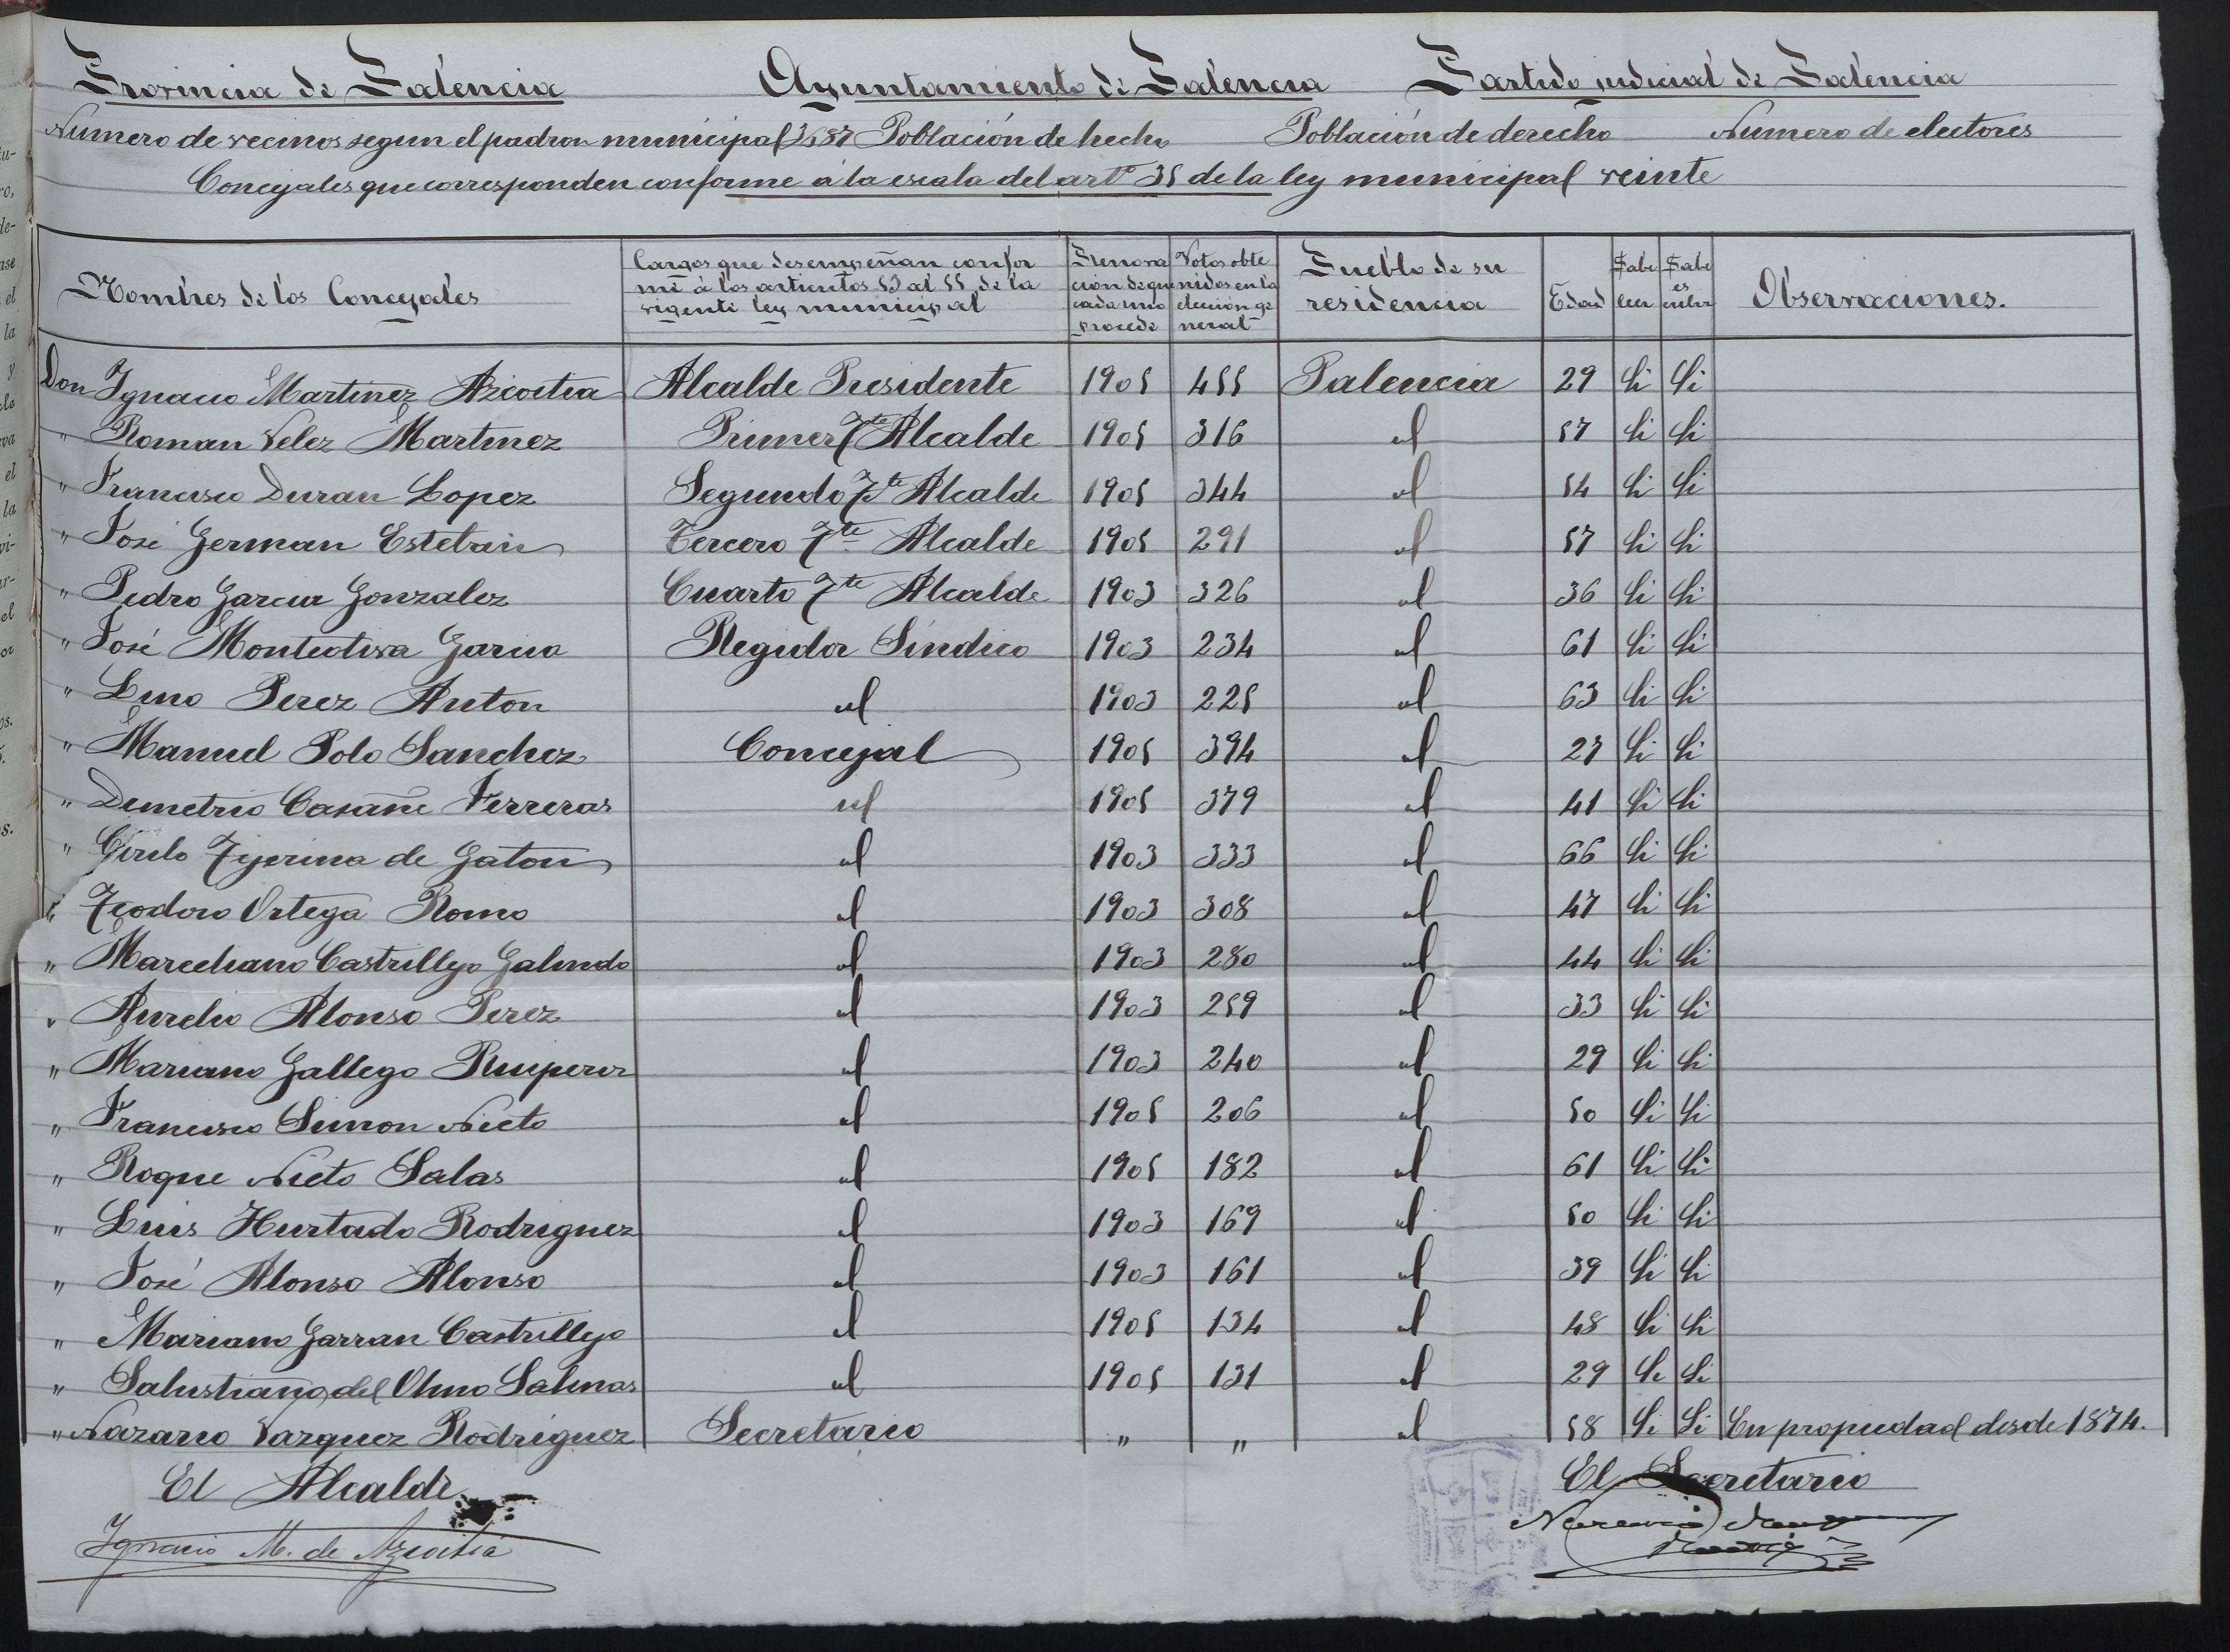 Provincia de Palencia Ayuntamiento de Palencia Partido judicial de Palencia
Numero de vecinos segun el padron municipal 3,687 Población de hecho Población de derecho Numero de electores
Concejales que corresponden conforme á la escala del artº 35 de la ley municipal veinte
Nombres de los Concejales
Cargos que desempeñan confor
me á los artientos 53 al 55 de la
vigente ley municipal
Renova
ción de que
cada uno
procede
Votos obte
nidos en la
elección ge
neral
Pueblo de su
residencia
Edad
Sabe
leer
Sabe
es
cribir
Observaciones.
Don Ignacio Martinez Azcoitia Alcalde Presidente 1905 455 Palencia 29 Si Si
" Roman Velez Martinez Primer Tte Alcalde 1905 316 id 57 Si Si
" Francisco Duran Lopez Segundo Tte Alcalde 1905 344 id 54 Si Si
" José German Esteban Tercero Tte Alcalde 1905 291 id 57 Si Si
" Pedro Garcia Gonzalez Cuarto Tte Alcalde 1903 326 id 36 Si Si
" José Monteotiva Garcia Regidor Síndico 1903 234 id 61 Si Si
" Lino Perez Anton id 1903 225 id 63 Si Si
" Manuel Polo Sanchez Concejal 1905 394 id 27 Si Si
" Demetrio Casañe Ferreras id 1905 379 id 41 Si Si
" Cirilo Tijerina de Gaton id 1903 333 id 66 Si Si
" Teodoro Ortega Romo id 1903 308 id 47 Si Si
" Marceliano Castrillejo Galindo id 1903 280 id 44 Si Si
" Aurelio Alonso Perez id 1903 259 id 33 Si Si
" Mariano Gallego Ruiperez id 1903 240 id 29 Si Si
" Francisco Simon Nieto id 1905 206 id 50 Si Si
" Roque Nieto Salas id 1905 182 id 61 Si Si
" Luis Hurtado Rodriguez id 1903 169 id 50 Si Si
" José Alonso Alonso id 1903 161 id 39 Si Si
" Mariano Garran Castrillejo id 1905 134 id 48 Si Si
" Salustiano del Olmo Salinas id 1905 131 id 29 Si Si
" Nazario Vazquez Rodriguez Secretario " " id 58 Si Si En propiedad desde 1874.
El Alcalde
Ignacio M. de Azcoitia
El Secretario